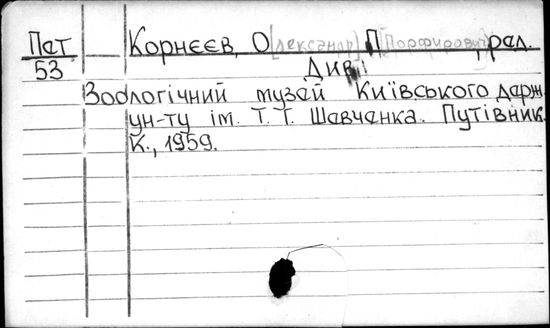 Пет Корнєєв, О[лександр] П[орфирович], ред.
53 Див.
Зоологічний музей Київського держ.
ун-ту ім. Т. Г. Шевченка. Путівник.
К., 1959.